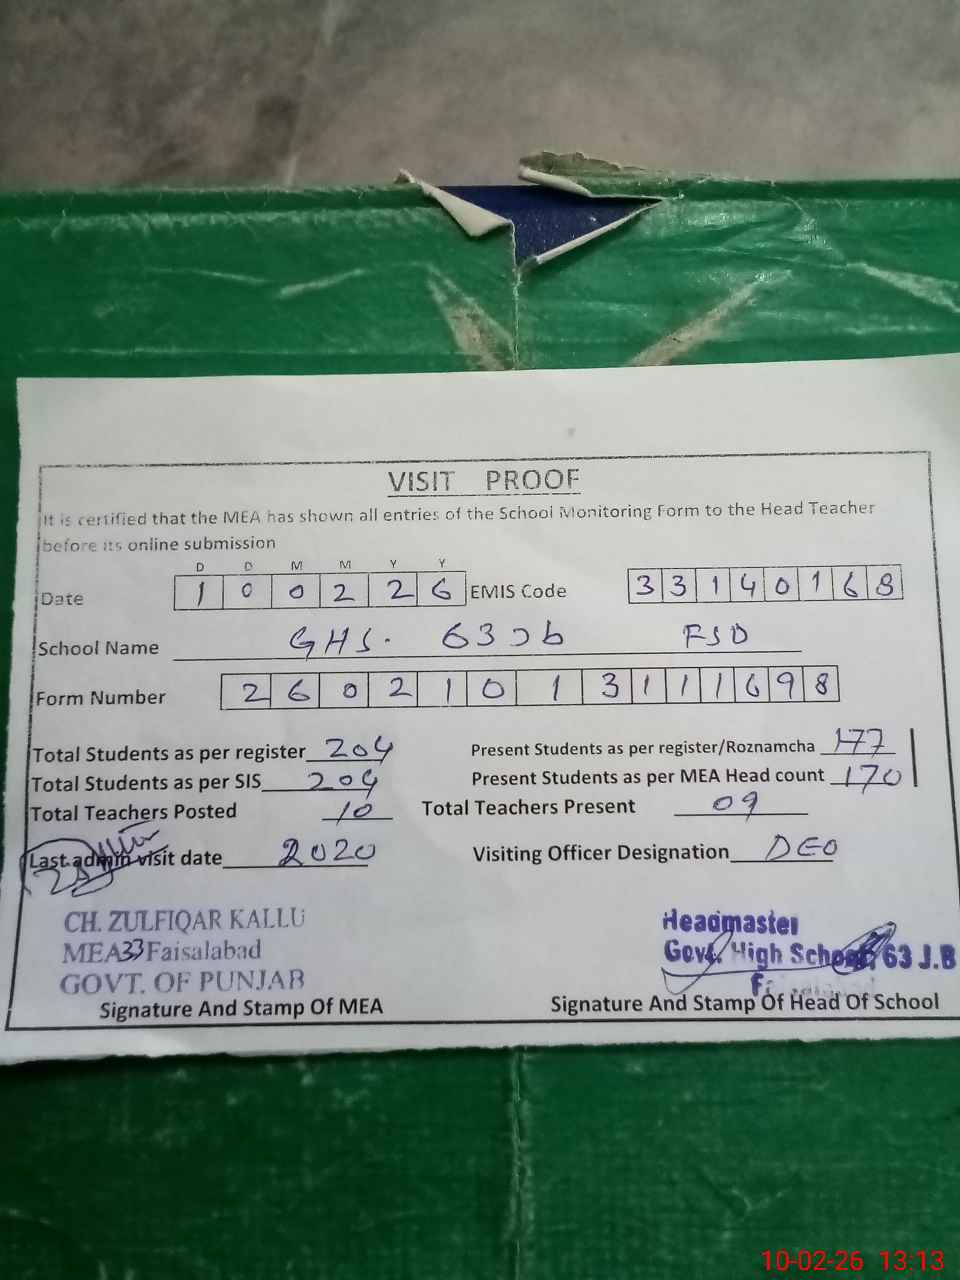 VISIT PROOF
It is certified that the MEA has shown all entries of the School Monitoring Form to the Head Teacher
before its online submission
D D M M Y Y
Date 1 0 0 2 2 6 EMIS Code 3 3 1 4 0 1 6 8
School Name GHS. 63 Jb FSD
Form Number 2 6 0 2 1 0 1 3 1 1 1 6 9 8
Total Students as per register 204 Present Students as per register/Roznamcha 177
Total Students as per SIS 204 Present Students as per MEA Head count 170
Total Teachers Posted 10 Total Teachers Present 09
Last admin visit date 2020 Visiting Officer Designation DEO
CH. ZULFIQAR KALLU Headmaster
MEA 33 Faisalabad Govt. High School 63 J.B
GOVT. OF PUNJAB
Signature And Stamp Of MEA Signature And Stamp Of Head Of School
10-02-26 13:13